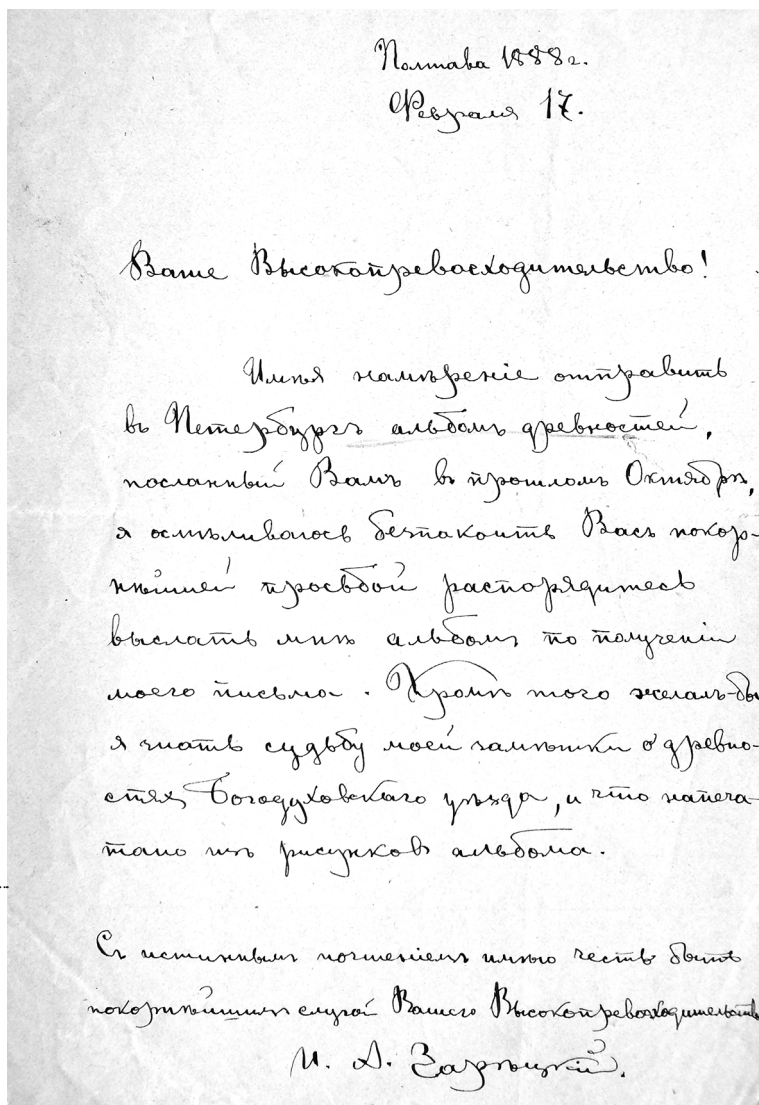 Полтава 1888 г.
Февраля 17.
Ваше Высокопревосходительство!
Имѣя намѣреніе отправить
въ Петербургъ альбомъ древностей,
посланный Вамъ въ прошломъ Октябрѣ,
я осмѣливаюсь безпакоить Васъ покор-
нѣйшей просьбой распорядитесь
выслать мнѣ альбомъ по полученіи
моего письма. Кромѣ того желалъ-бы
я знать судьбу моей замѣтки о древно-
стяхъ Богодуховскаго уѣзда, и что напеча-
тано изъ рисунковъ альбома.
Съ истиннымъ почтеніемъ имѣю честь быть
покорнѣйшимъ слугой Вашего Высокопревосходительств
И. А. Зарѣцкій.